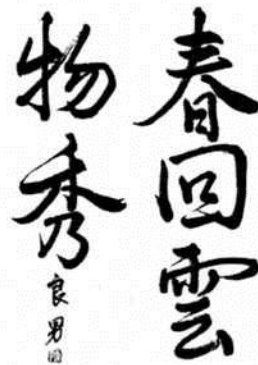 春回雲
物秀
良男